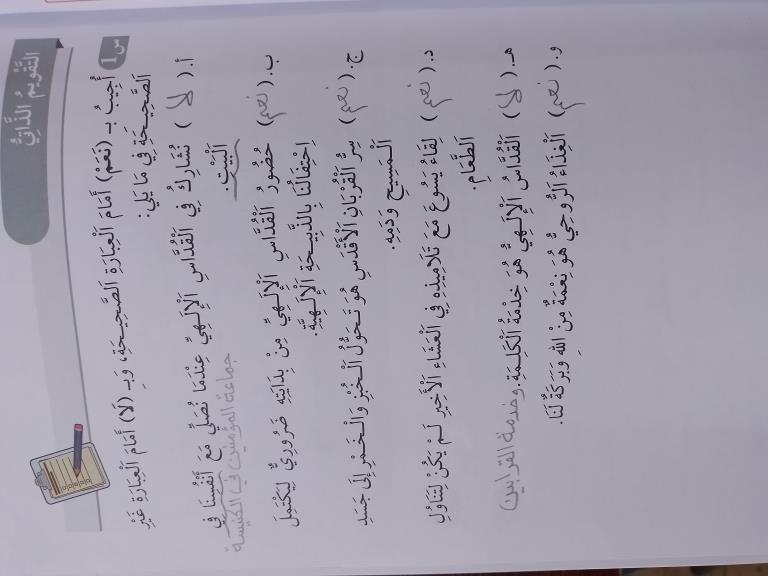 التَّقْوِيمُ الذَّاتِيُّ
س1
أُجِيبُ بِـ (نَعَمْ) أَمَامَ الْعِبَارَةِ الصَّحِيحَةِ، وَبِـ (لَا) أَمَامَ الْعِبَارَةِ غَيْرِ
الصَّحِيحَةِ فِي مَا يَلِي:
أ. ( لا ) نُشَارِكُ فِي الْقُدَّاسِ الْإِلَهِيِّ عِنْدَمَا نُصَلِّي مَعَ أَنْفُسِنَا فِي
الْبَيْتِ. جماعة المؤمنين في الكنيسة
ب. ( نعم ) حُضُورُ الْقُدَّاسِ الْإِلَهِيِّ مِنْ بِدَايَتِهِ ضَرُورِيٌّ لِيَكْتَمِلَ
احْتِفَالُنَا بِالذَّبِيحَةِ الْإِلَهِيَّةِ.
ج. ( نعم ) سِرُّ الْقُرْبَانِ الْأَقْدَسِ هُوَ تَحَوُّلُ الْخُبْزِ وَالْخَمْرِ إِلَى جَسَدِ
الْمَسِيحِ وَدَمِهِ.
د. ( نعم ) لِقَاءُ يَسُوعَ مَعَ تَلَامِيذِهِ فِي الْعَشَاءِ الْأَخِيرِ لَمْ يَكُنْ لِتَنَاوُلِ
الطَّعَامِ.
هـ. ( لا ) الْقُدَّاسُ الْإِلَهِيُّ هُوَ خِدْمَةُ الْكَلِمَةِ. وخدمة القرابين
و. ( نعم ) الْغِذَاءُ الرُّوحِيُّ هُوَ نِعْمَةٌ مِنَ اللهِ وَبَرَكَةٌ لَنَا.